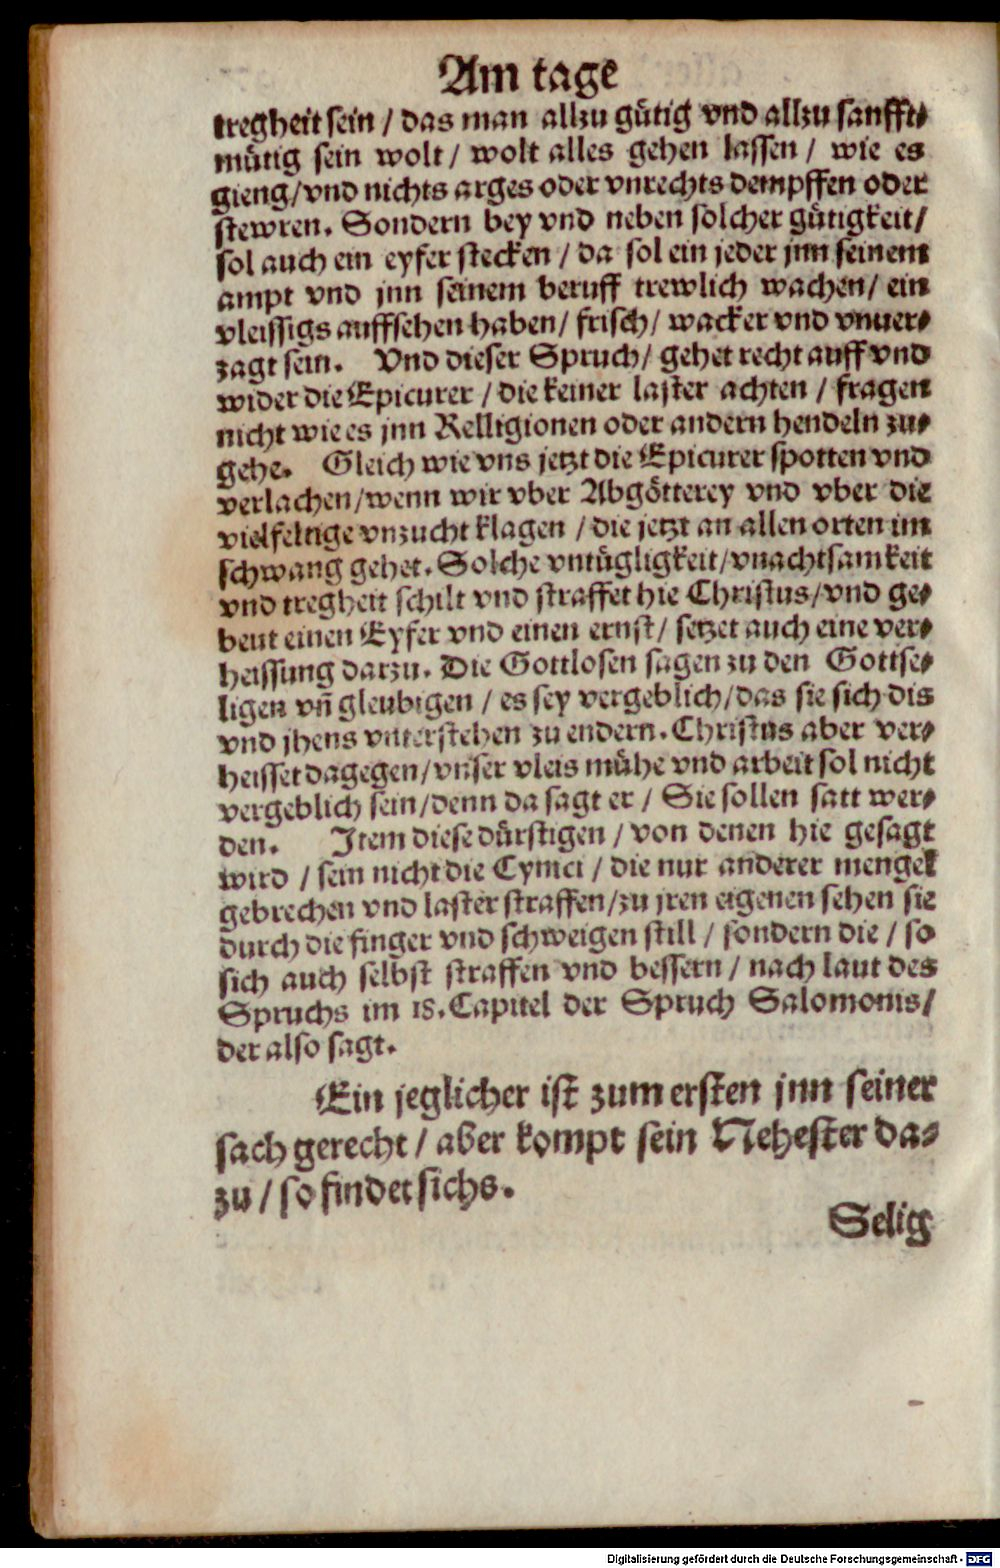 Am tage
tregheit sein / das man allzu gütig vnd allzu sanfft⸗
mütig sein wolt / wolt alles gehen lassen / wie es
gieng / vnd nichts arges oder vnrechts dempffen oder
stewren. Sondern bey vnd neben solcher gütigkeit /
sol auch ein eyfer stecken / da sol ein jeder jnn seinem
ampt vnd jnn seinem beruff trewlich wachen / ein
vleissigs auffsehen haben / frisch / wacker vnd vnuer⸗
zagt sein. Vnd dieser Spruch / gehet recht auff vnd
wider die Epicurer / die keiner laster achten / fragen
nicht wie es jnn Relligionen oder andern hendeln zu⸗
gehe. Gleich wie vns jetzt die Epicurer spotten vnd
verlachen / wenn wir vber Abgötterey vnd vber die
vielfeltige vnzucht klagen / die jetzt an allen orten im
schwang gehet. Solche vntügligkeit / vnachtsamkeit
vnd tregheit schilt vnd straffet hie Christus / vnd ge⸗
beut einen Eyfer vnd einen ernst / setzet auch eine ver⸗
heissung darzu. Die Gottlosen sagen zu den Gottse⸗
ligen vñ gleubigen / es sey vergeblich / das sie sich dis
vnd jhens vnterstehen zu endern. Christus aber ver⸗
heisset dagegen / vnser vleis mühe vnd arbeit sol nicht
vergeblich sein / denn da sagt er / Sie sollen satt wer⸗
den. Item diese dürstigen / von denen hie gesagt
wird / sein nicht die Cynici / die nur anderer mengel
gebrechen vnd laster straffen / zu jren eigenen sehen sie
durch die finger vnd schweigen still / sondern die / so
sich auch selbst straffen vnd bessern / nach laut des
Spruchs im 18. Capitel der Spruch Salomonis /
der also sagt.
Ein jeglicher ist zum ersten jnn seiner
sach gerecht / aber kompt sein Nehester da⸗
zu / so findet sichs.
Selig
Digitalisierung gefördert durch die Deutsche Forschungsgemeinschaft - DFG